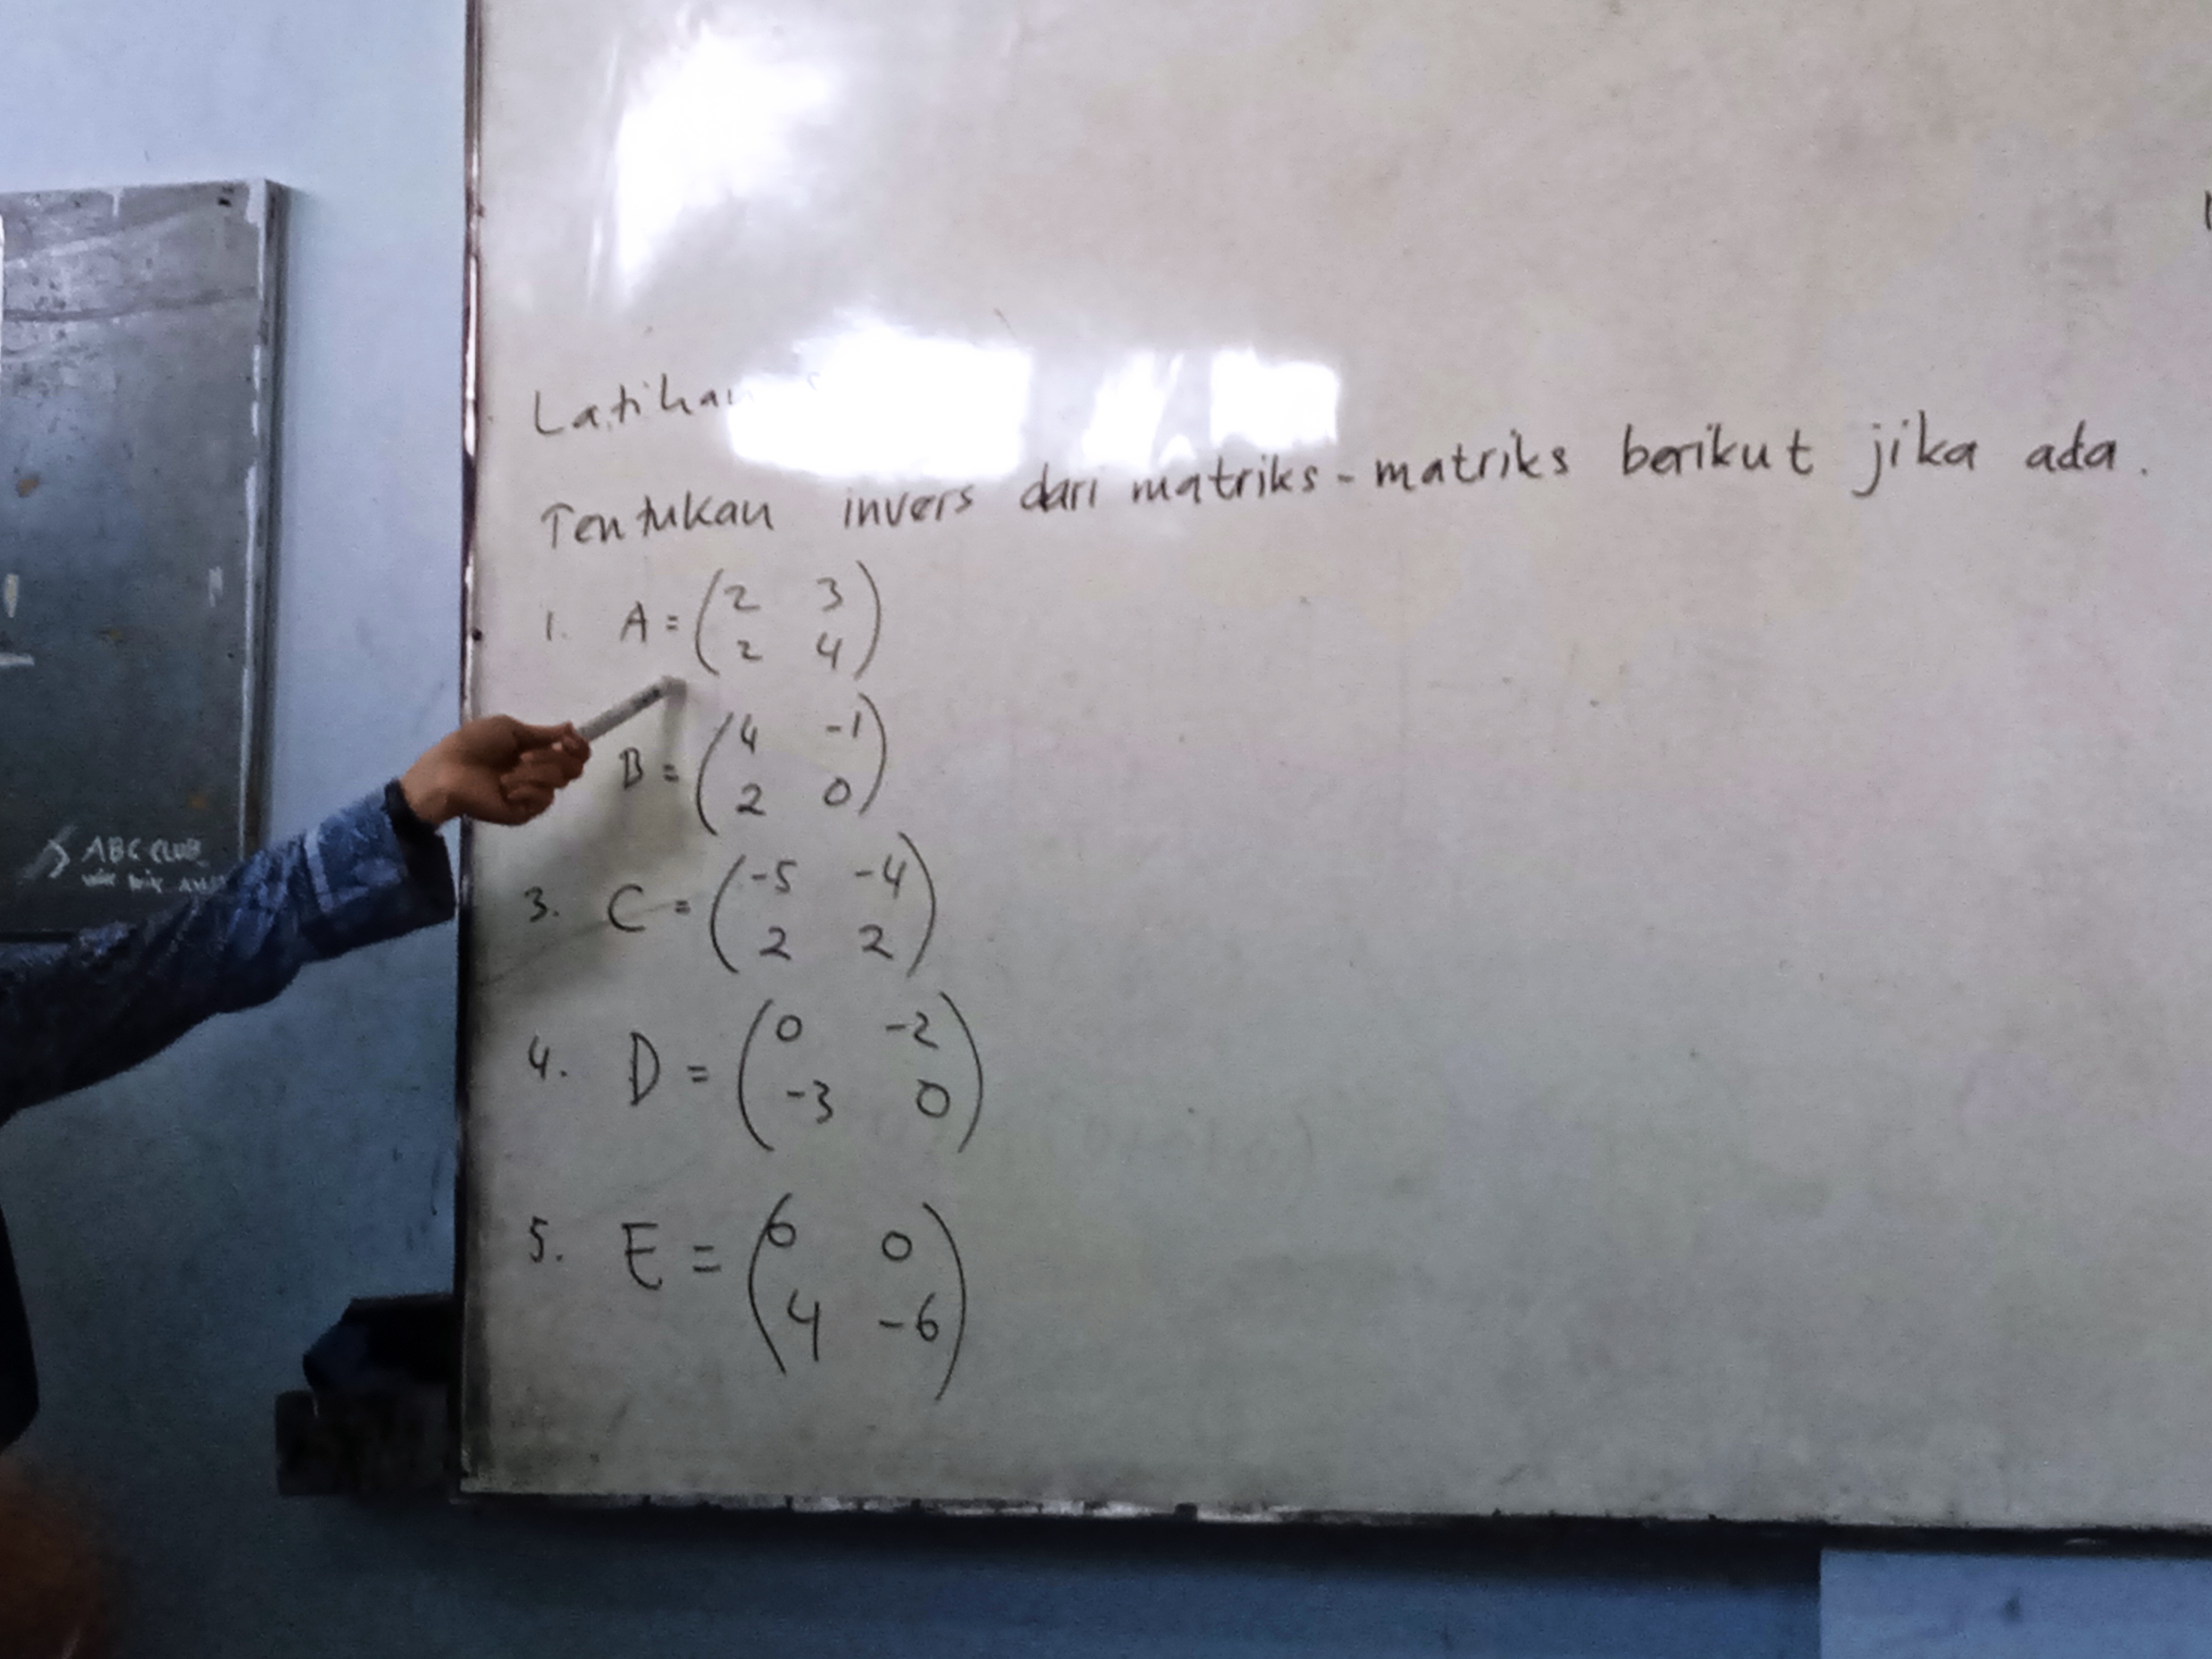 Latihan
Tentukan invers dari matriks-matriks berikut jika ada.
1. A = (2 3
2 4)
B = (4 -1
2 0)
3. C = (-5 -4
2 2)
4. D = (0 -2
-3 0)
5. E = (6 0
4 -6)
ABC CLUB